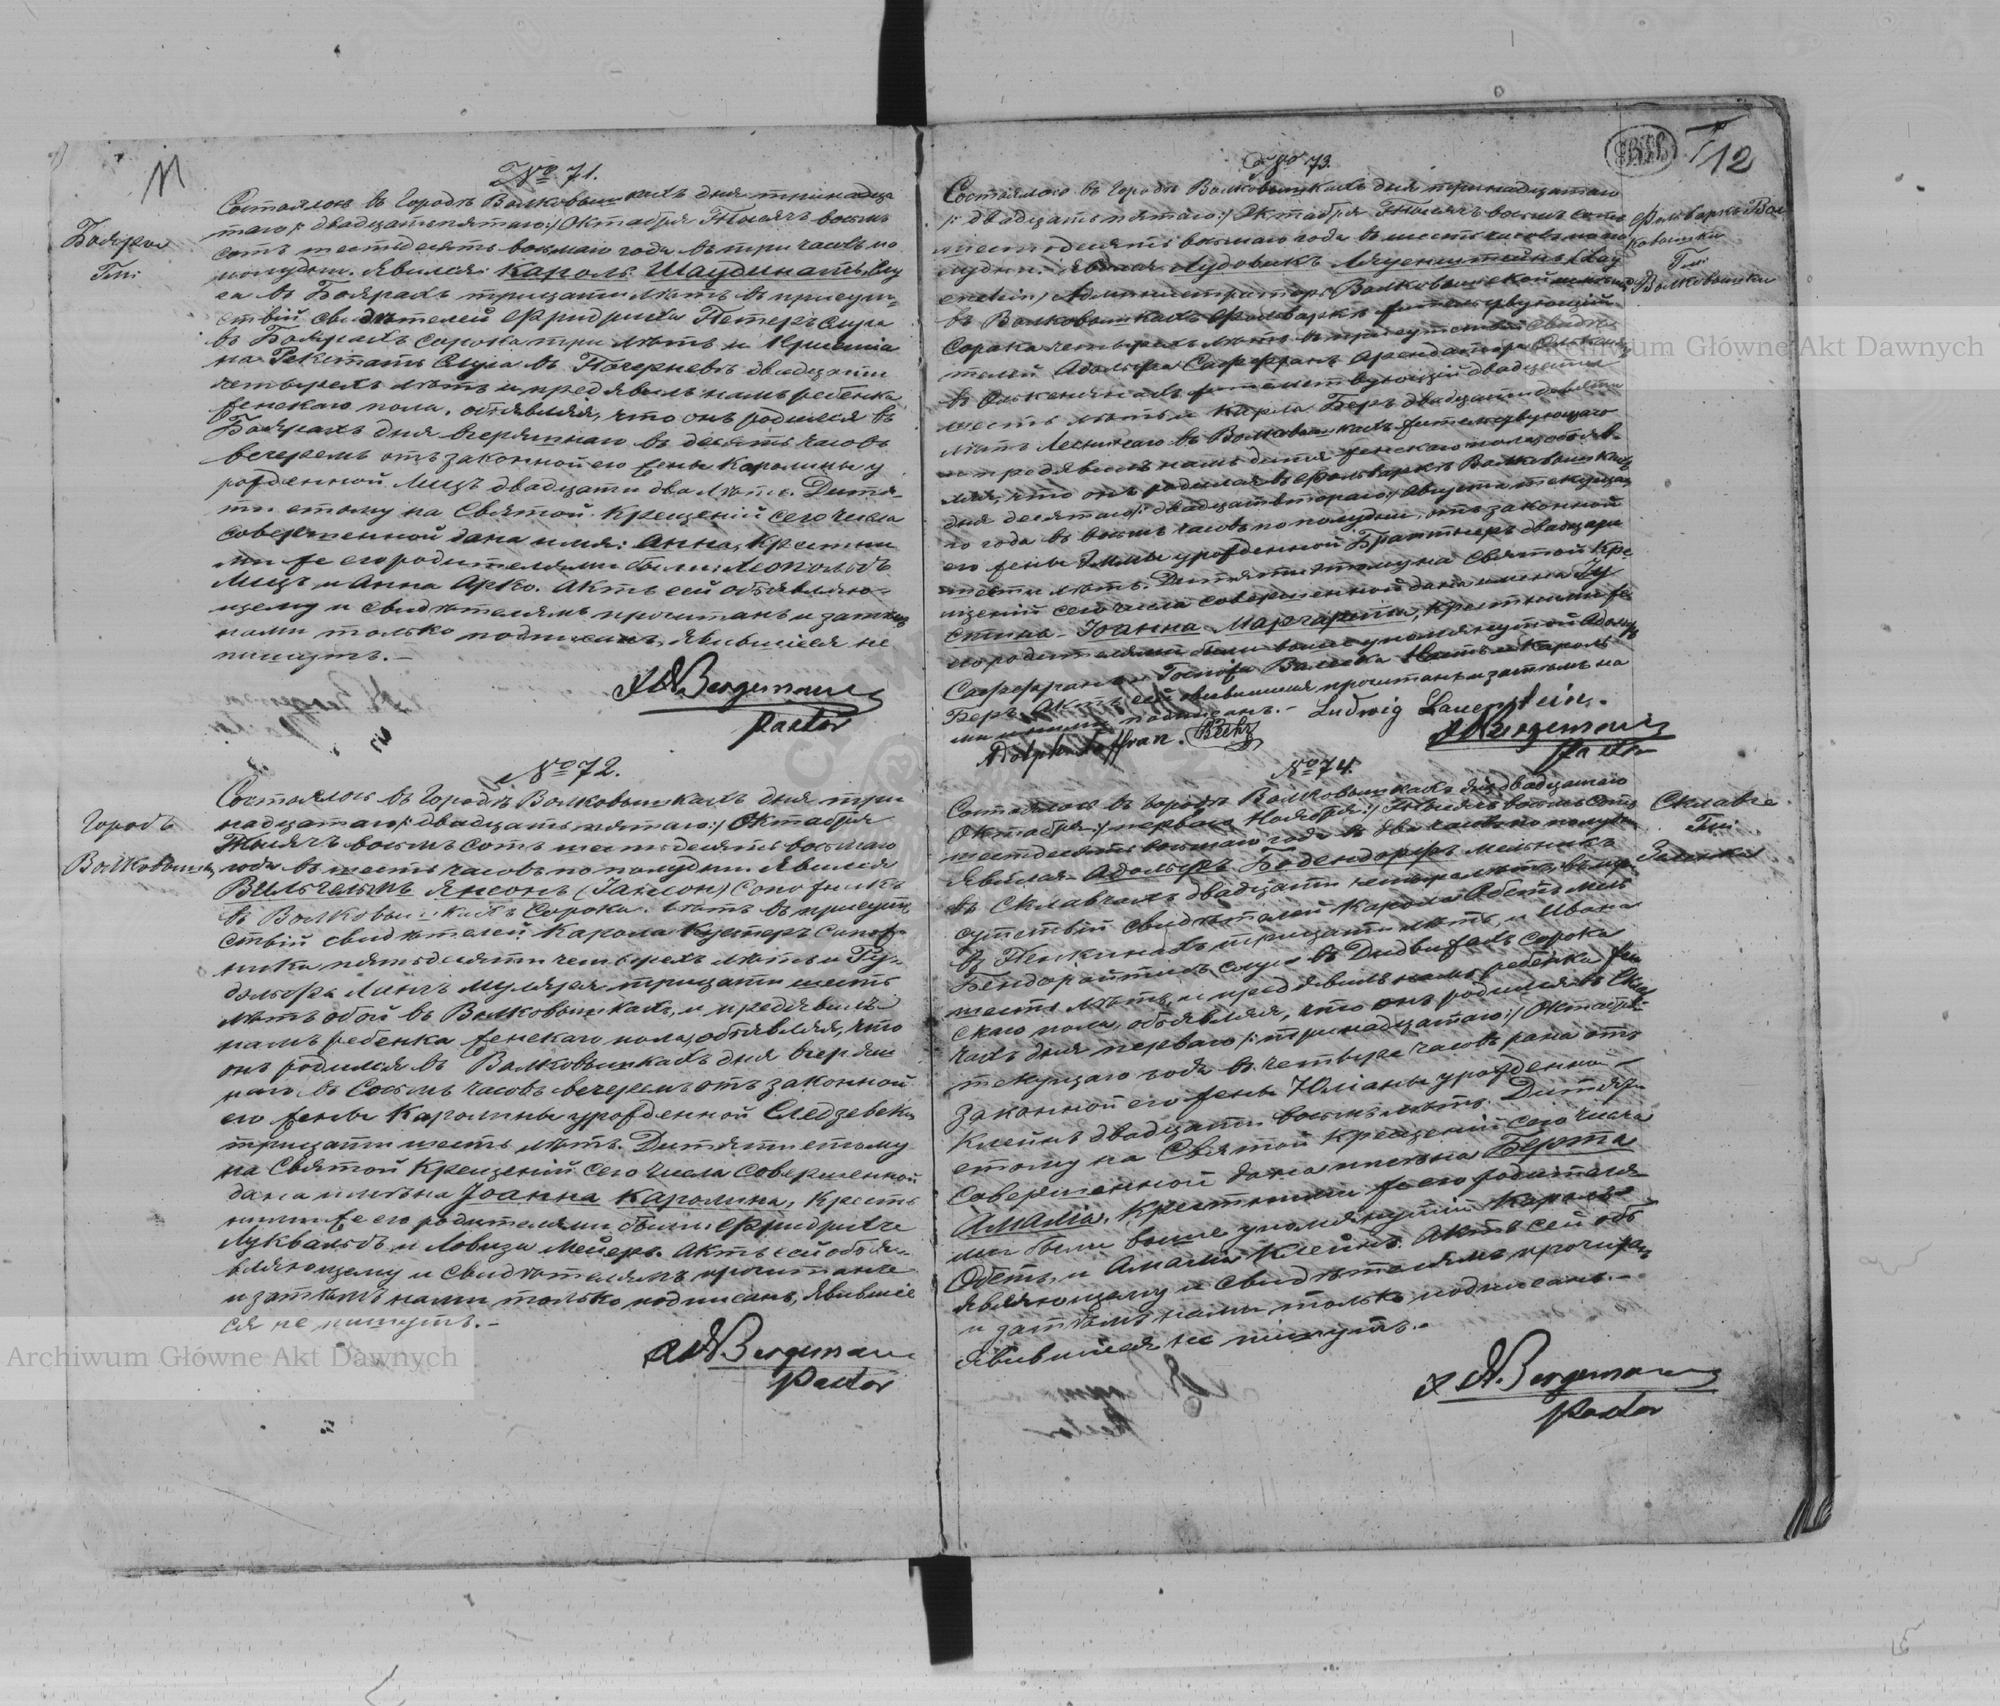 № 71.
Бояры
Гми:
Состоялось въ Городѣ Волковышкахъ дня тринадца
таго /: двадцать пятаго :/ Октября Тысячъ восемь
сотъ шестьдесятъ восьмаго года въ три часовъ по
полудни. Явился: Кароль Шаудинатъ, слу
га въ Боярахъ тридцати лѣтъ въ присут
ствіи свидѣтелей Фридриха Петеръ слуга
въ Боярахъ сорока три лѣтъ и Кристіа
на Рекстатъ слуга въ двадцати
четырехъ лѣтъ и предявилъ намъ ребенка
женскаго пола, объявляя, что онъ родился въ
Боярахъ дня вчерашнаго въ десять часовъ
вечеремъ отъ законной его жены Каролины у
рожденной Лицъ двадцати два лѣтъ. Дитя
ти етому на Святой Крещеніи сего числа
совершенной дана имя: Анна, Крестны
ми же его родителями были: Леопольдъ
Лицъ и Анна Арко. Актъ сей объявляю
щему и свидѣтелямъ прочитанъ и затѣмъ
нами только подписанъ, явившіеся не
пишутъ. –
Bergemann
Pastor
№ 72.
Городъ
Волковышки
Состоялось въ Городѣ Волковышкахъ дня три
надцатаго /: двадцать пятаго :/ Октября
Тысячъ восемь сотъ шестьдесятъ восьмаго
года въ шесть часовъ по полудни. Явился
Вильгельмъ Янсонъ (Jанson) Сапожникъ
въ Волковышкахъ Сорока лѣтъ въ присут
ствіи свидѣтелей Карола Кустеръ Сапож
ника пятьдесяти четырехъ лѣтъ и Гу
дольфа Линъ муляра тридцати шесть
лѣтъ обой въ Волковышкахъ, и предявилъ
намъ ребенка женскаго пола, объявляя, что
онъ родился въ Волковышкахъ дня вчераш
наго въ восемь часовъ вечеремъ отъ законной
его жены Каролины урожденной Следзевски
тридцати шесть лѣтъ. Дитяти етому
на Святой Крещеніи сего числа совершенной
дана имена Jоанна Каролина, Крестн
ными же его родителями были: Фридрихъ
Луквальдъ и Ловиза Мейеръ. Актъ сей объя
вляющему и свидѣтелямъ прочитанъ
и затѣмъ нами только подписанъ, явившіе
ся не пишутъ. –
Bergemann
Pastor
12
№ 73.
Фольваркъ Вол
ковышки
Гми:
Волковышки
Состоялось въ Городѣ Волковышкахъ дня тринадцатаго
/: двадцать пятаго :/ Октября Тысячъ восемь сотъ
шестьдесятъ восьмаго года въ шесть часовъ по по
лудни. Явился Лудовикъ Лауенштейнъ (Lau
enstein) Администраторъ Волковышской
въ Волковышкахъ Фольваркѣ жительствующій
сорока четырехъ лѣтъ въ присутствіи свидѣ
телей Адольфа Саффранъ Арендатора
въ жительствующій двадцати
шесть лѣтъ и Карла Беръ двадцати девяти
лѣтъ Лесничаго въ Волковышкахъ жительствующаго
и предявилъ намъ дитя женскаго пола, объяв
ляя, что онъ родился въ Фольваркѣ Волковышкахъ
дня десятаго /: двадцать втораго :/ Августа текуща
го года въ восемь часовъ по полудни, отъ законной
его жены Эммы урожденной Браттнеръ двадцати
шести лѣтъ. Дитяти етому на Святой Кре
щеніи сего числа совершенной дана имена Ју
стина – Јоанна Маргарета, Крестными же
его родителями были выше упомянутой Адольфъ
Саффранъ, и Кароль
Беръ. Актъ сей явившимся прочитанъ и затѣмъ на
ми и ними подписанъ. – Ludwig Lauenstein.
Adolph Saffran.
Bergemann
Pastor
№ 74.
Склавче
Гми:
Зеленка
Состоялось въ Городѣ Волковышкахъ дня двадцатаго
Октября /: перваго Ноября :/ Тысячъ восемь сотъ
шестдесятъ восьмаго года въ два часовъ по полудни
Явился Адольфъ Бодендорфъ мельникъ
въ Склавчахъ двадцати четырехъ лѣтъ, въ при
сутствіи свидѣтелей Карола Абетъ мель
въ Пенкинахъ тридцати лѣтъ, и Ивана
Бендорайтисъ слуга въ Дидвижахъ сорока
шесть лѣтъ, и предявилъ намъ ребенка жен
скаго пола, объявляя, что онъ родился въ Склав
чахъ дня перваго /: тринадцатаго :/ Октября
текущаго года въ четыре часовъ рана отъ
законной его жены Юліаны урожденной
Клейнъ двадцати восемь лѣтъ. Дитяти
етому на Святой Крещеніи сего числа
совершенной дана имена Берта
Амалія, Крестными же его родителя
ми были выше упомянутый Кароль
Абетъ, и Амалія Клейнъ. Актъ сей объ
являющему и свидѣтелямъ прочитанъ
и затѣмъ нами только подписанъ. –
Явившіеся не пишутъ. –
Bergemann
Pastor
Archiwum Główne Akt Dawnych
Archiwum Główne Akt Dawnych